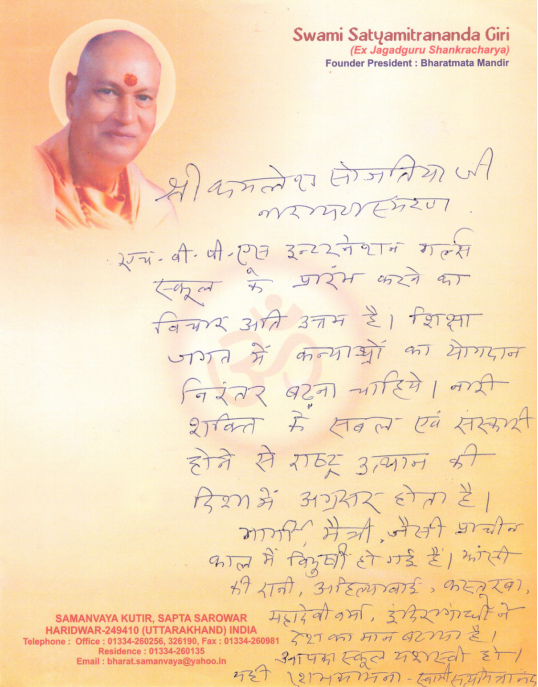 Swami Satyamitrananda Giri
(Ex Jagadguru Shankracharya)
Founder President : Bharatmata Mandir
श्री कमलेश सोजतिया जी
नारायणस्मरण
एच. वी. पी. एस इन्टरनेशनल गर्ल्स
स्कूल के प्रारंभ करने का
विचार अति उत्तम है। शिक्षा
जगत में कन्याओं का योगदान
निरंतर बढ़ना चाहिये। नारी
शक्ति के सबल एवं संस्कारी
होने से राष्ट्र उत्थान की
दिशा में अग्रसर होता है।
गार्गी, मैत्री, जैसी प्राचीन
काल में विदुषी हो गई है। झांसी
की रानी, अहिल्याबाई, कस्तूरबा,
महादेवी वर्मा, इंदिरा गांधी ने
देश का मान बढाया है।
आपका स्कूल यशस्वी हो।
यही शुभकामना - स्वामी सत्यमित्रानंद
ॐ
SAMANVAYA KUTIR, SAPTA SAROWAR
HARIDWAR-249410 (UTTARAKHAND) INDIA
Telephone : Office : 01334-260256, 326190, Fax : 01334-260981
Residence : 01334-260135
Email : bharat.samanvaya@yahoo.in